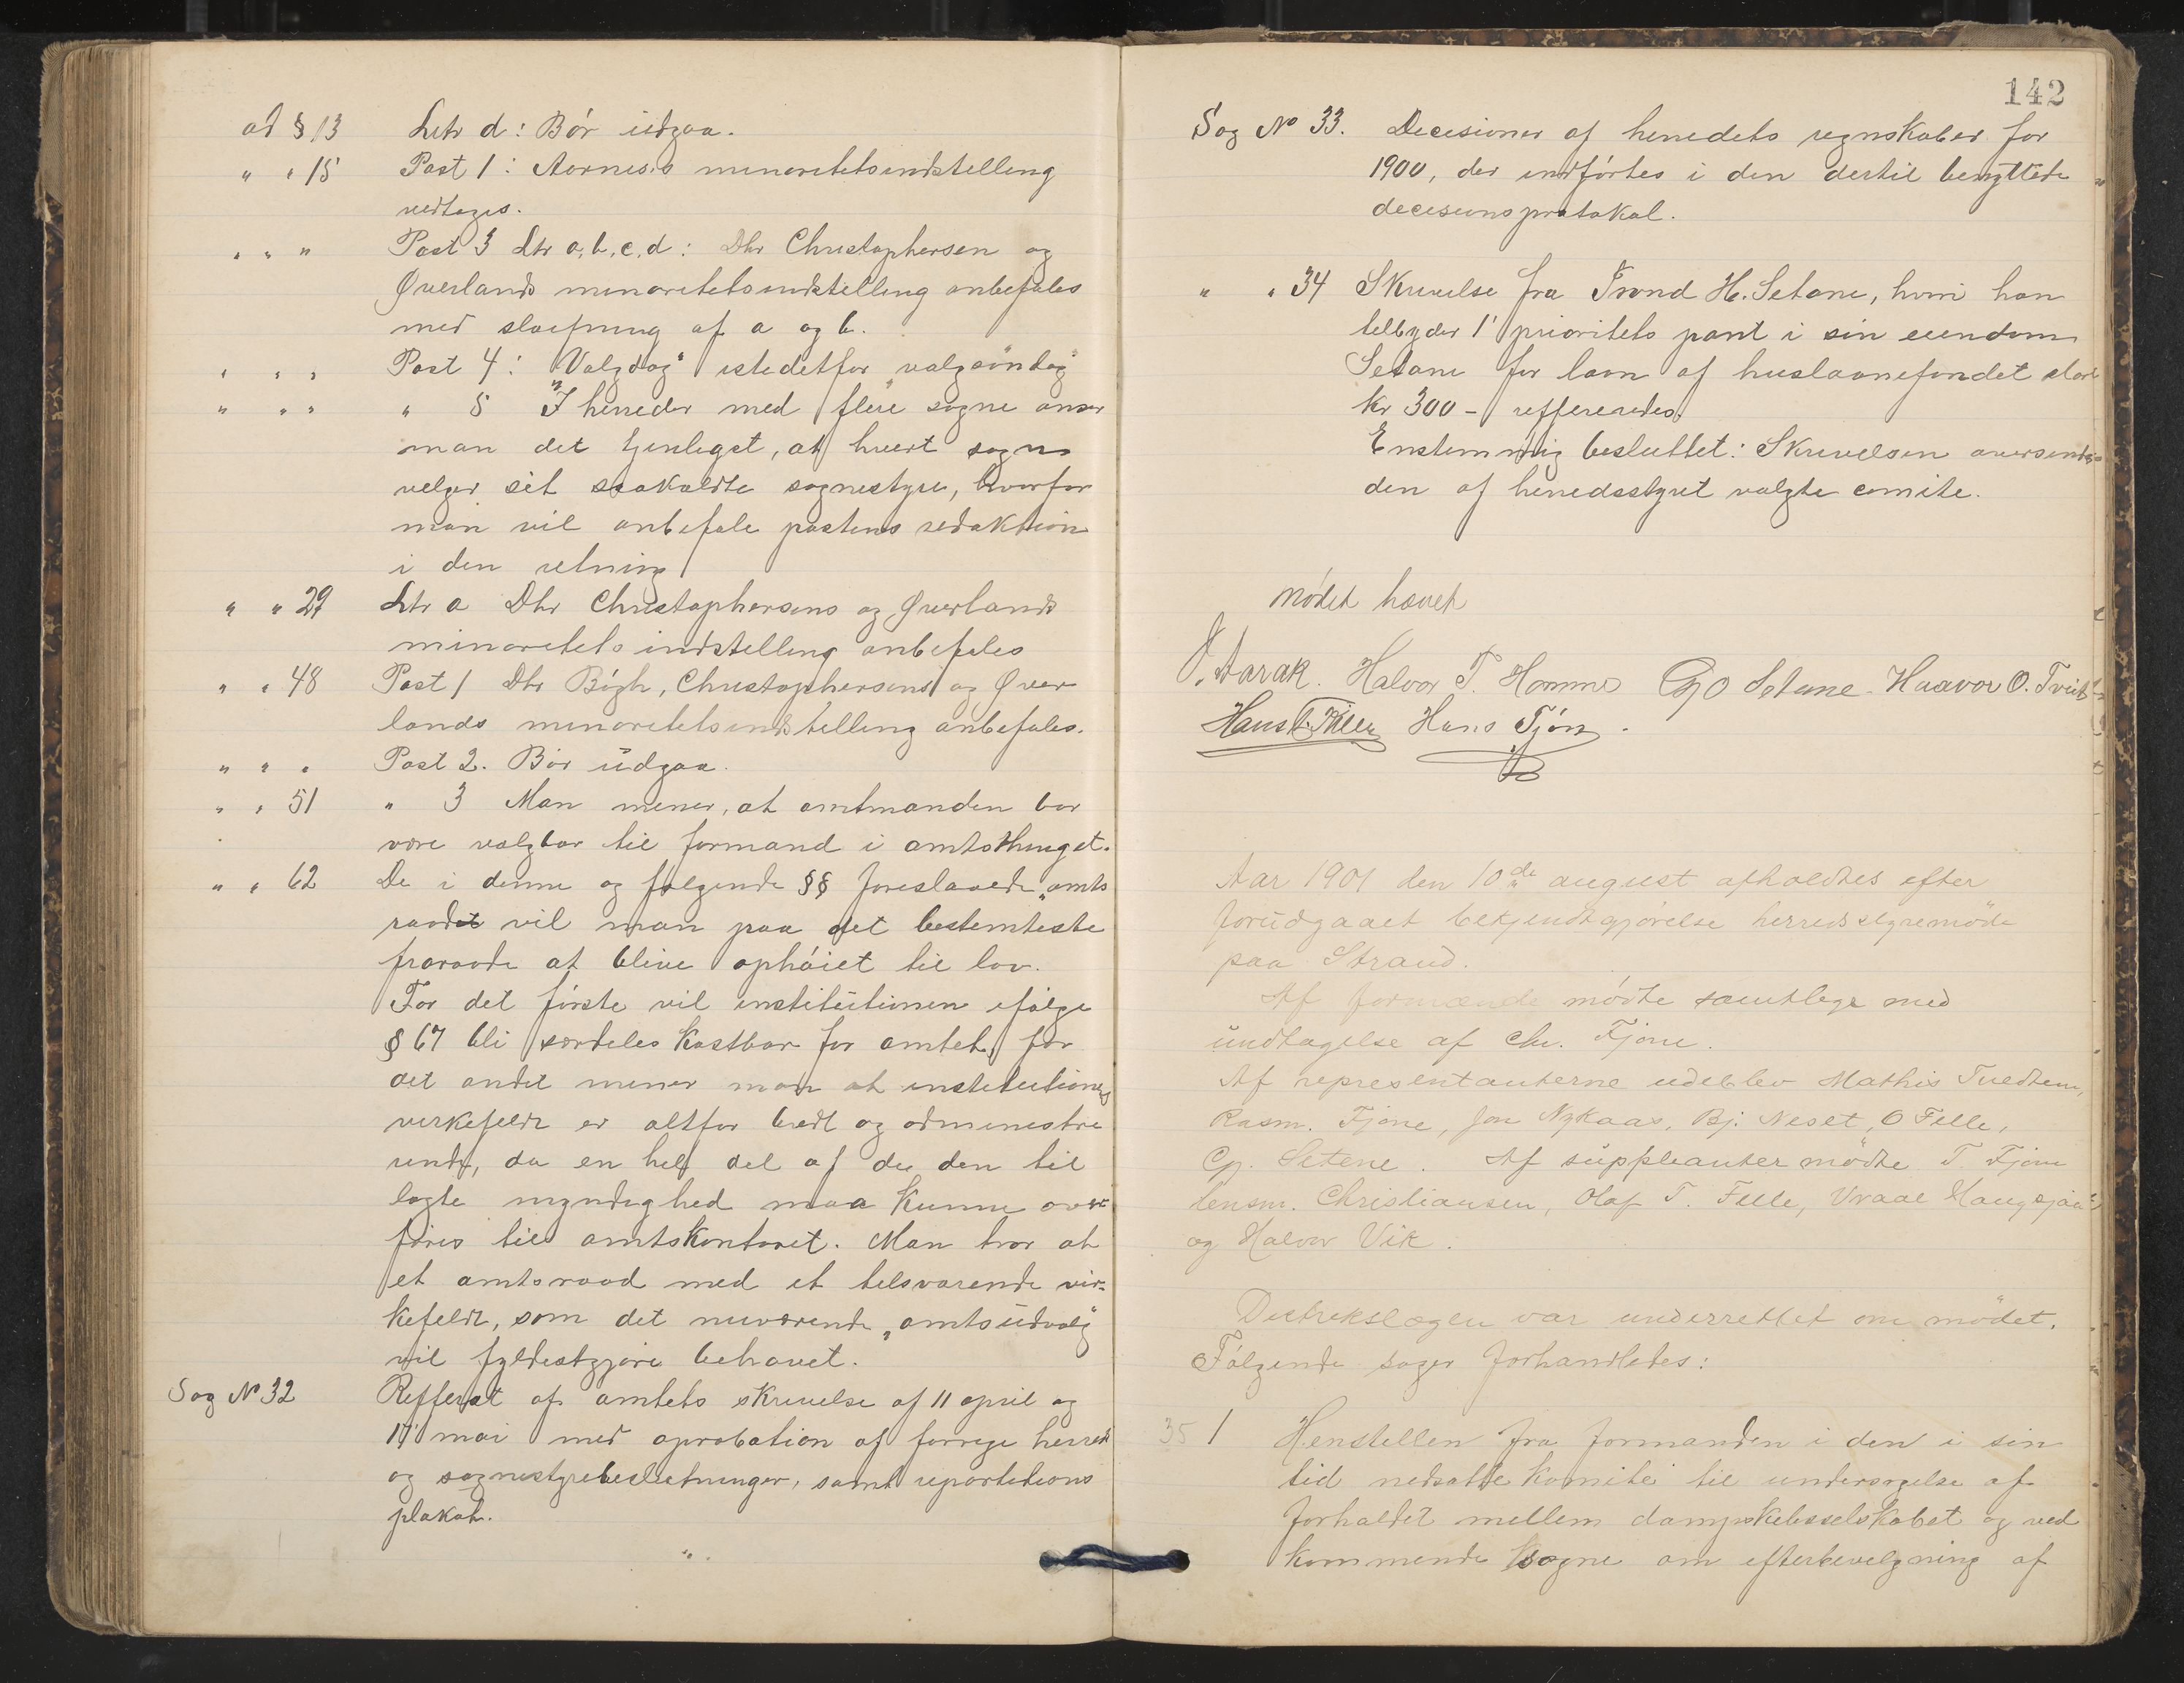 ad § 13 Litr d: Bör udgaa.
" " 15 Post 1: Aarnes's minoritetsindstilling
vedtages.
" " " Post 3 Ltr a, b, c, d: Dhr Christophersen og
Øverlands minoritetsindstilling anbefales
med sløifning af a og b.
" " " Post 4: "Valgdag" istedetfor "valgsöndag"
" " " " 5 I herreder med flere sogne anser
man det tjenligst, at hvert sogn
velger sit saakaldte sognestyre, hvorfor
man vil anbefale postens redaktion
i den retning
" " 29 Ltr a Dhr Christophersens og Øverlands
minoritetsindstilling anbefales
" " 48 Post 1 Dhr Bögh, Christophersens og Øver
lands minoritetsindstilling anbefales.
" " " Post 2. Bör udgaa.
" " 51 " 3 Man mener, at amtmanden bør
være valgbar til formand i amtsthinget.
" " 62 De i denne og følgende §§ foreslaaede "amts
raad vil man paa det bestemteste
fraraade at blive ophöiet til lov.
For det förste vil institutionen ifölge
§ 67 bli særdeles kostbar for amtet, for
det andet mener man at institutionens
virkefeldt er altfor bredt og administre
rende, da en hel del af de den til
lagte myndighed maa kunne over
föres til amtskontoret. Man tror at
et amtsraad med et tilsvarende vir-
kefeldt, som det nuværende "amtsudvalg"
vil fyldestgjöre behovet.
Sag No 32 Refferat af amtets skrivelse af 11 april og
17 mai med aprobation af forrige herreds
og sognestyrebeslutninger, samt repartitions
plakat.
142
Sag No 33. Decisioner af herredets regnskaber for
1900, der indførtes i den dertil benyttede
decisionsprotokol.
" " 34 Skrivelse fra Trond H. Setane, hvori han
tilbyder 1' prioritets pant i sin eiendom
Setane for laan af huslaanefondet stort
kr 300 - reffereredes.
Enstemmig besluttet: Skrivelsen oversendes
den af herredsstyret valgte comite.
Mödet hævet
Aarak. Halvor T. Homme Gjo Setane. Haavor O. Tveit
Hans T. Fille Hans Fjöne.
Aar 1901 den 10de august afholdtes efter
forudgaaet bekjendtgjörelse herredsstyremöde
paa Strand.
Af formænde mödte samtlige med
undtagelse af Chr. Fjone.
Af representanterne udeblev Mathis Tveitten,
Rasm. Fjone, Jon Nykaas, Bj. Neset, O Fille,
Gj. Setene. Af suppleanter mödte T. Fjone
lensm. Christiansen, Olaf T. Fille, Vraal Haugsjaa
og Halvor Vik.
Distrikslægen var underrettet om mödet.
Fölgende sager forhandledes:
35 1 Henstillen fra formanden i den i sin
tid nedsatte komite til undersøgelse af
forholdet mellem dampskibsselskabet og ved
kommende sogne om efterbevilgning af